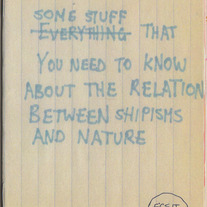 SOME STUFF
EVERYTHING THAT
YOU NEED TO KNOW
ABOUT THE RELATION
BETWEEN SHIPISMS
AND NATURE